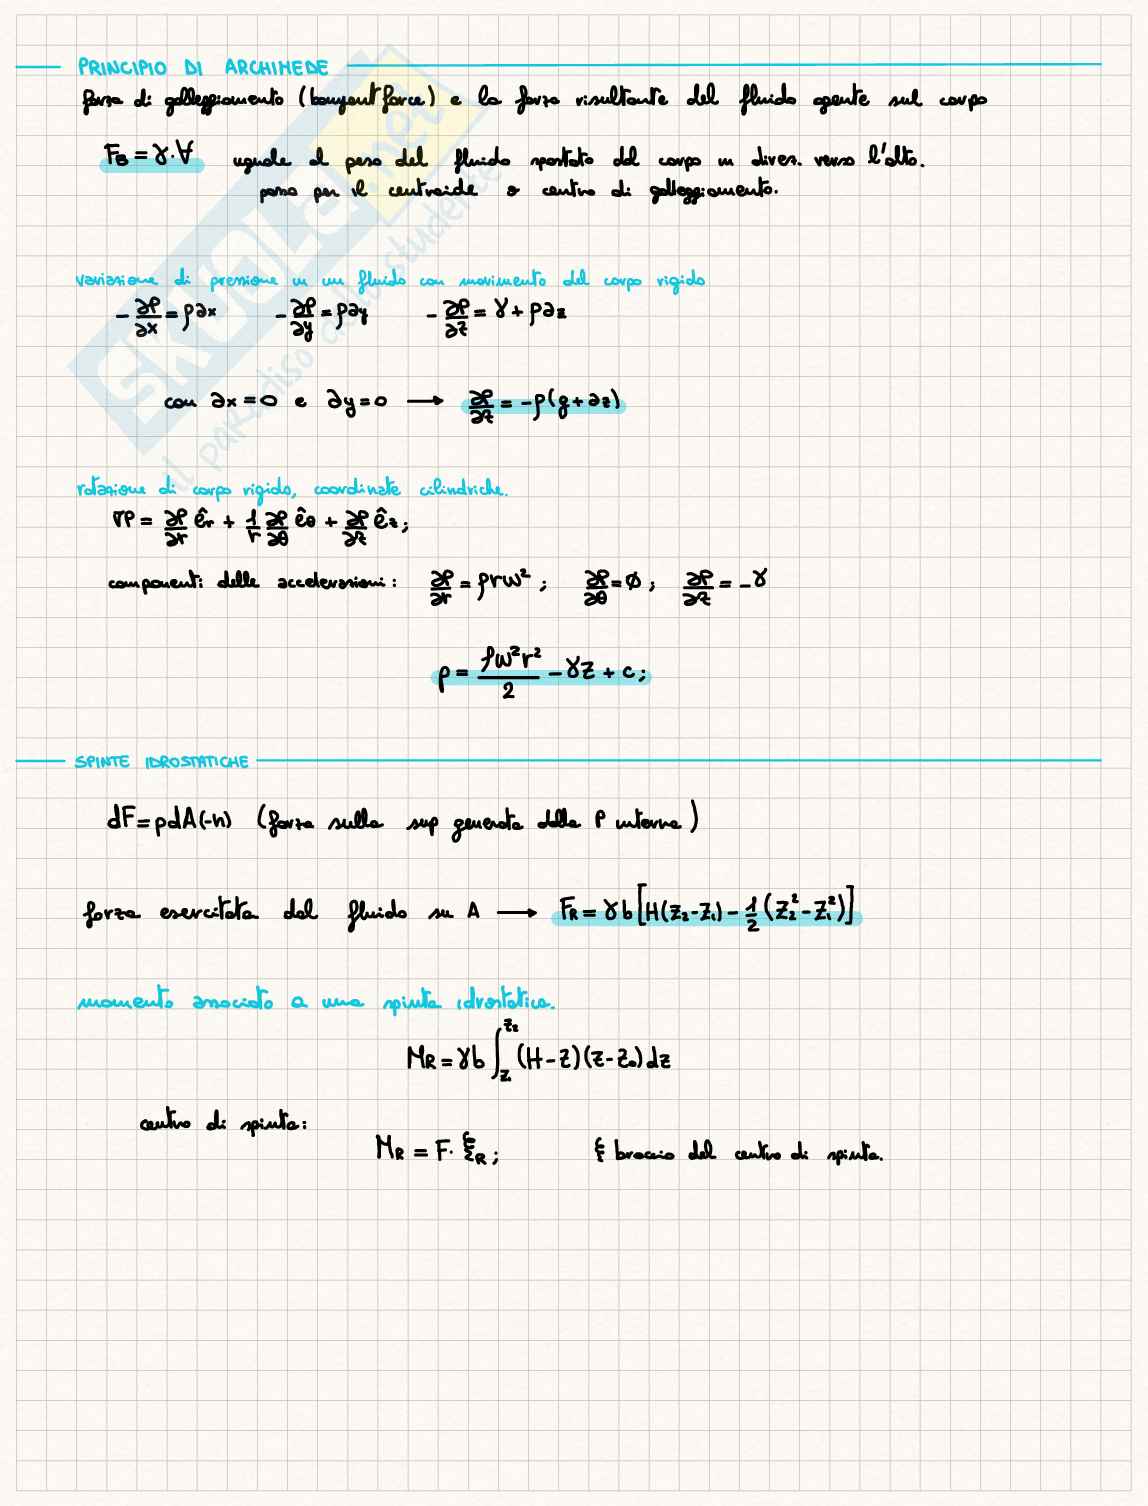 PRINCIPIO DI ARCHIMEDE
forza di galleggiamento (bouyent force) e la forza risultante del fluido agente sul corpo
F_B = γ·∀ uguale al peso del fluido spostato dal corpo in direz. verso l'alto.
passa per il centroide o centro di galleggiamento.
variazione di pressione in un fluido con movimento del corpo rigido
-∂P/∂x = ρax -∂P/∂y = ρay -∂P/∂z = γ + ρaz
con ax = 0 e ay = 0 → ∂P/∂z = -ρ(g + az)
rotazione di corpo rigido, coordinate cilindriche.
∇P = ∂P/∂r êr + 1/r ∂P/∂θ êθ + ∂P/∂z êz;
componenti delle accelerazioni: ∂P/∂r = ρrω²; ∂P/∂θ = ϕ; ∂P/∂z = -γ
p = ρω²r²/2 - γz + c;
SPINTE IDROSTATICHE
dF = pdA(-n) (forza sulla sup generata dalla P interna)
forza esercitata dal fluido su A → F_R = γb[H(z₂-z₁) - 1/2(z₂²-z₁²)]
momento associato a una spinta idrostatica.
M_R = γb ∫_{z₁}^{z₂} (H-z)(z-z₀)dz
centro di spinta:
M_R = F·ξ_R; ξ braccio del centro di spinta.
SKUOLA.net
il paradiso dello studente